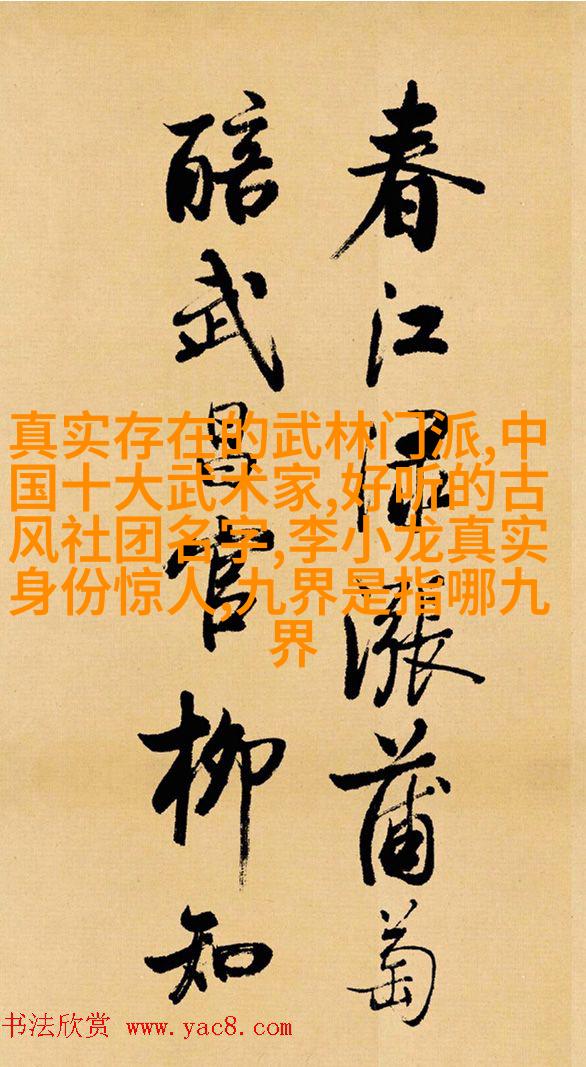 春江渌涨蒲萄
醅武昌官柳知
真实存在的武林门派,中
国十大武术家,好听的古
风社团名字,李小龙真实
身份惊人,九界是指哪九
界
书法欣赏 www.yac8.com